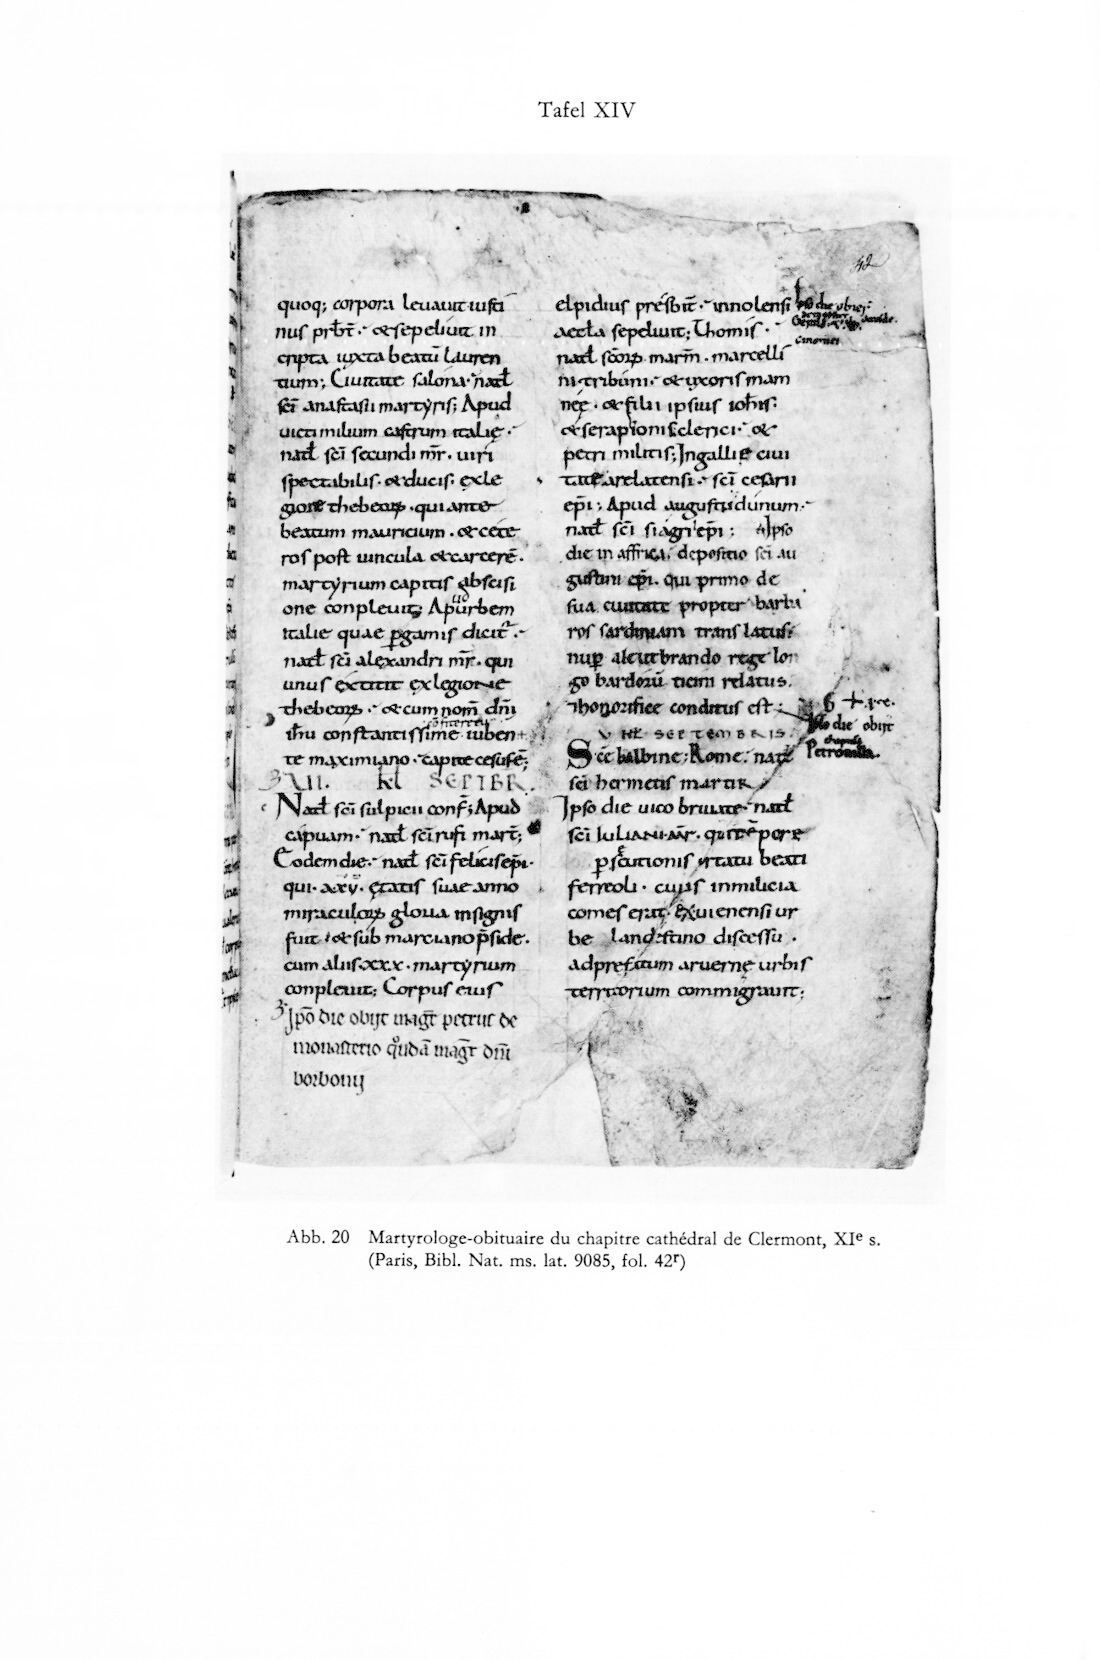 Tafel XIV
42
quoq; corpora leuauit iusti
nus prbt̄. et sepeliuit in
cripta iuxta beatū lauren
tium; Ciuitate salona. nat̄
sc̄i anastasii martyris; Apud
uictimilium castrum italię.
nat̄ sc̄i secundi mr̄. uiri
spectabilis. et ducis. exle
gione thebeoꝝ. qui ante
beatum mauricium. et cęte
ros post uincula et carcerē.
martyrium capitis abscisi
one conpleuit; Apud urbem
italie quae ꝑgamis dicit̄.
nat̄ sc̄i alexandri mr̄. qui
unus extitit exlegione
thebeoꝝ. et cum nom̄ dn̄i
ih̄u constantissime iuben
te maximiano. capite cesus ē;
VII. KL SEPTBR.
Nat̄ sc̄i sulpicii conf̄; Apud
capuam. nat̄ sc̄i rufi mart̄;
Eodem die. nat̄ sc̄i felicis ep̄i.
qui. xxv. ętatis suae anno
miraculoꝝ gloria insignis
fuit. et sub marciano p̄side.
cum aliis xxx. martyrium
conpleuit; Corpus eius
Ip̄o die obijt mag̅r petrus de
monasterio q̊ndā mag̅r dn̄i
borbonij
elpidius presbit̄. in nolensi
aeccl̄a sepeliuit; Thomis.
nat̄ sc̄oꝝ marm̄. marcelli
ni tribuni. et uxoris mam
neę. et filii ipsius ioh̄is.
et serapionis clerici. et
petri militis; In gallię ciui
tate arelatensi. sc̄i cesarii
ep̄i; Apud augustidunum.
nat̄ sc̄i siagri ep̄i; Ipso
die in affrica. depositio sc̄i au
gustini ep̄i. qui primo de
sua ciuitate propter barba
ros sardiniam translatus.
nuꝑ a leutbrando rege lon
gobardorū ticini relatus.
⁊ honorifice conditus est.
V KL SEPTEMBRIS.
Sc̄e balbine; Rome. nat̄
sc̄i hermetis martir̄
Ipso die uico briuate. nat̄
sc̄i IULIANI MR̄. qui tēpore
ꝑsecutionis
beati
ferreoli. cuius in milicia
comes erat. Ex uienensi ur
be landestino discessu.
ad prefatum aruernę urbis
territorium commigrauit;
Ipso die obiit
Ipso die obijt
Petronilla.
Abb. 20 Martyrologe-obituaire du chapitre cathédral de Clermont, XIe s.
(Paris, Bibl. Nat. ms. lat. 9085, fol. 42r)